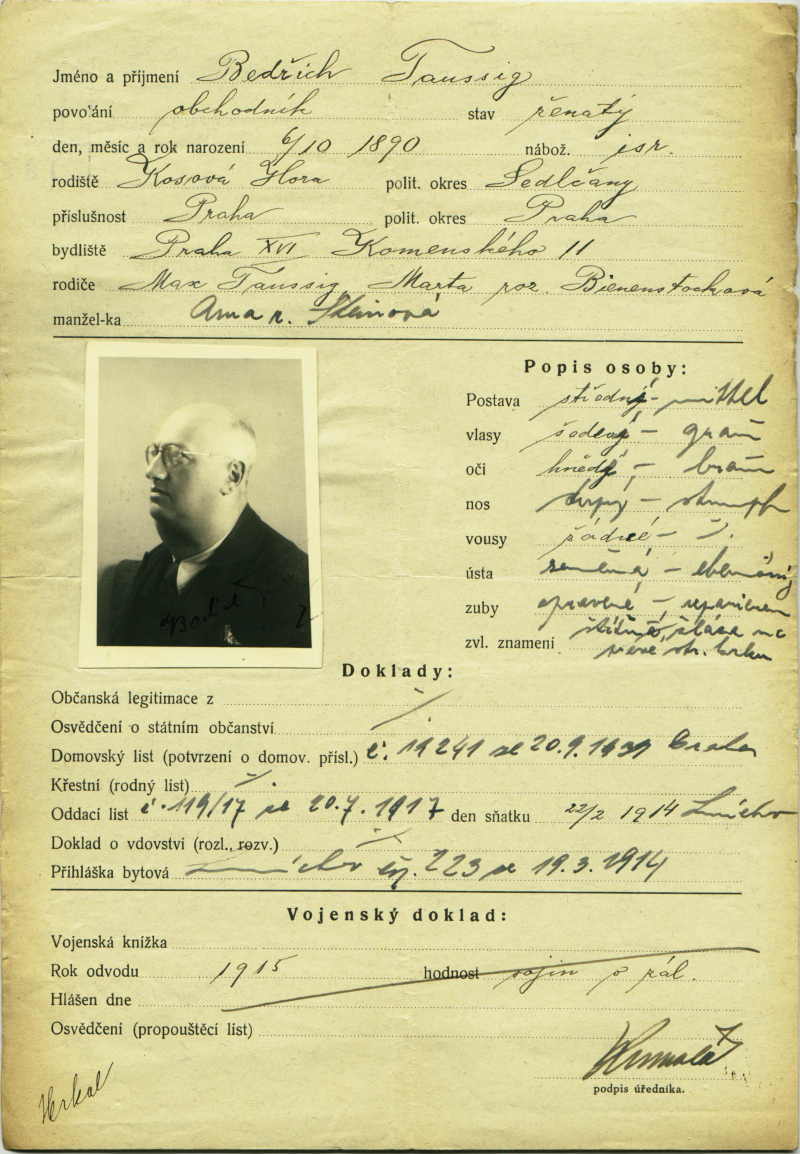 Jméno a příjmení Bedřich Taussig
povolání obchodník stav ženatý
den, měsíc a rok narození 6/10 1890 nábož. isr.
rodiště Kosová Hora polit. okres Sedlčany
příslušnost Praha polit. okres Praha
bydliště Praha XVI Komenského 11
rodiče Max Taussig, Marta roz. Bienenstocková
manžel-ka Anna r. Steinová
Popis osoby:
Postava střední - mittel
vlasy šedivý - grau
oči hnědé - braun
nos tupý - stumpf
vousy žádné -
ústa souměrná - ebenmäßig
zuby opravené -
zvl. znamení
Doklady:
Občanská legitimace z
Osvědčení o státním občanství
Domovský list (potvrzení o domov. přísl.) č. 19241 ze 20.9. 1939 Praha
Křestní (rodný list)
Oddací list č. 119/17 ze 20.7. 1917 den sňatku 22/2 1914 Smíchov
Doklad o vdovství (rozl., rozv.)
Přihláška bytová Smíchov čp. 223 ze 19.3. 1914
Vojenský doklad:
Vojenská knížka
Rok odvodu 1915 hodnost vojín v zál.
Hlášen dne
Osvědčení (propouštěcí list)
podpis úředníka.